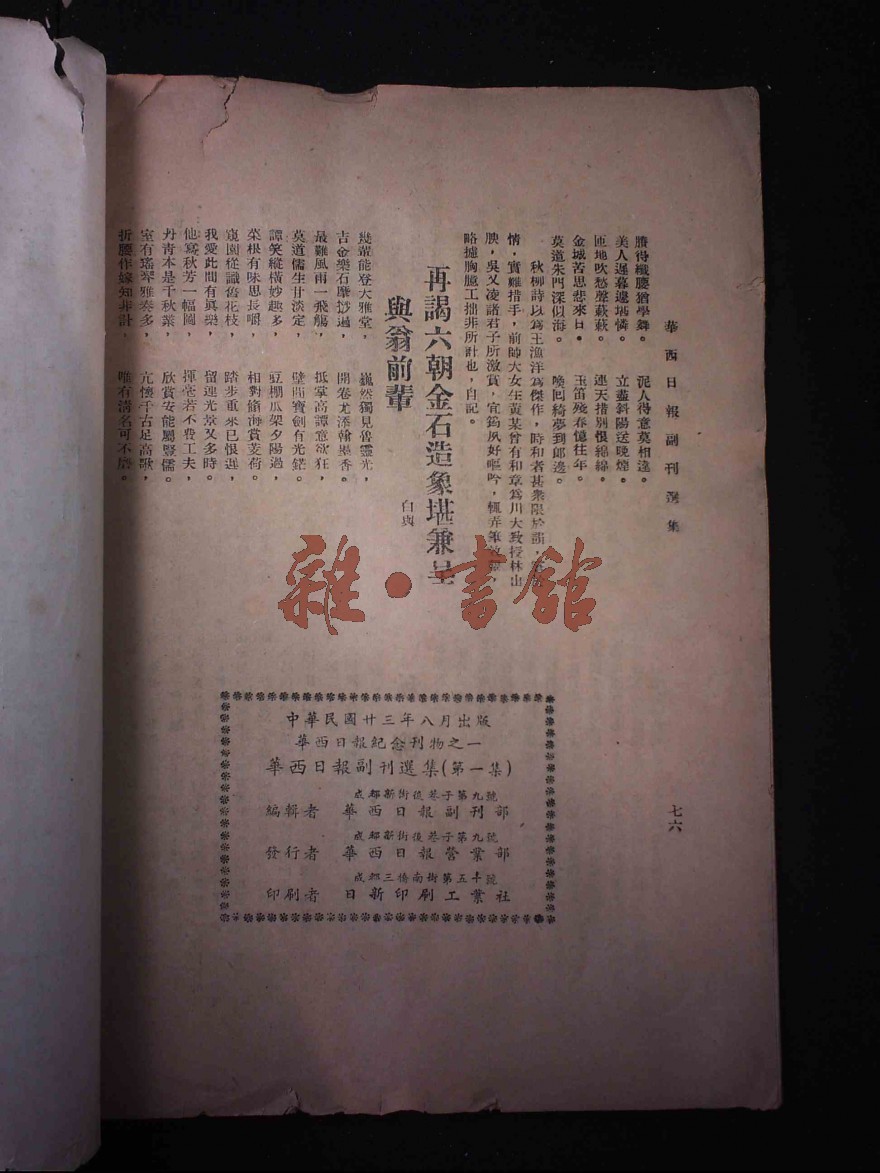 華西日報副刊選集
七六
賸得纖腰猶學舞。 泥人得意莫相違。
美人遲暮遽堪憐。 立盡斜陽送晚煙。
匝地吹愁聲蔌蔌。 連天措別恨綿綿。
金城苦思悲來日。 玉笛殘春憶往年。
莫道朱門深似海。 喚回綺夢到郎邊。
秋柳詩以爲王漁洋爲傑作,時和者甚衆限於韻
情,實難措手,前帥大女在黃某曾有和章爲川大敎授林山
腴,吳又凌諸君子所激賞,宜鎢夙好嘔吟,輒弄
略攄胸臆工拙非所計也,自記。
再謁六朝金石造象堪兼呈
與翁前輩
白與
幾輩能登大雅堂, 巍然獨見魯靈光,
吉金樂石摩挲過, 開卷尤添翰墨香。
最難風雨一飛觴, 抵掌高譚意欲狂,
莫道儒生甘淡定, 壁間寶劍有光鋩。
譚笑縱橫妙趣多, 豆棚瓜架夕陽過,
菜根有味思長嚼, 相對翛海賞芰荷。
窺園從識舊花枝, 踏步重來已恨遲,
我愛此間有眞樂, 留連光景又多時。
他寫秋芳一幅圖, 揮毫若不費工夫,
丹青本是千秋業, 欣賞安能屬豎儒。
室有瑤琴雅奏多, 亢懷千古足高歌,
折腰作嫁知非計, 唯有清名可不磨。
雜·書館
中華民國廿三年八月出版
華西日報紀念刊物之一
華西日報副刊選集(第一集)
成都新街後巷子第九號
編輯者 華西日報副刊部
成都新街後巷子第九號
發行者 華西日報營業部
成都三橋南街第五十號
印刷者 日新印刷工業社